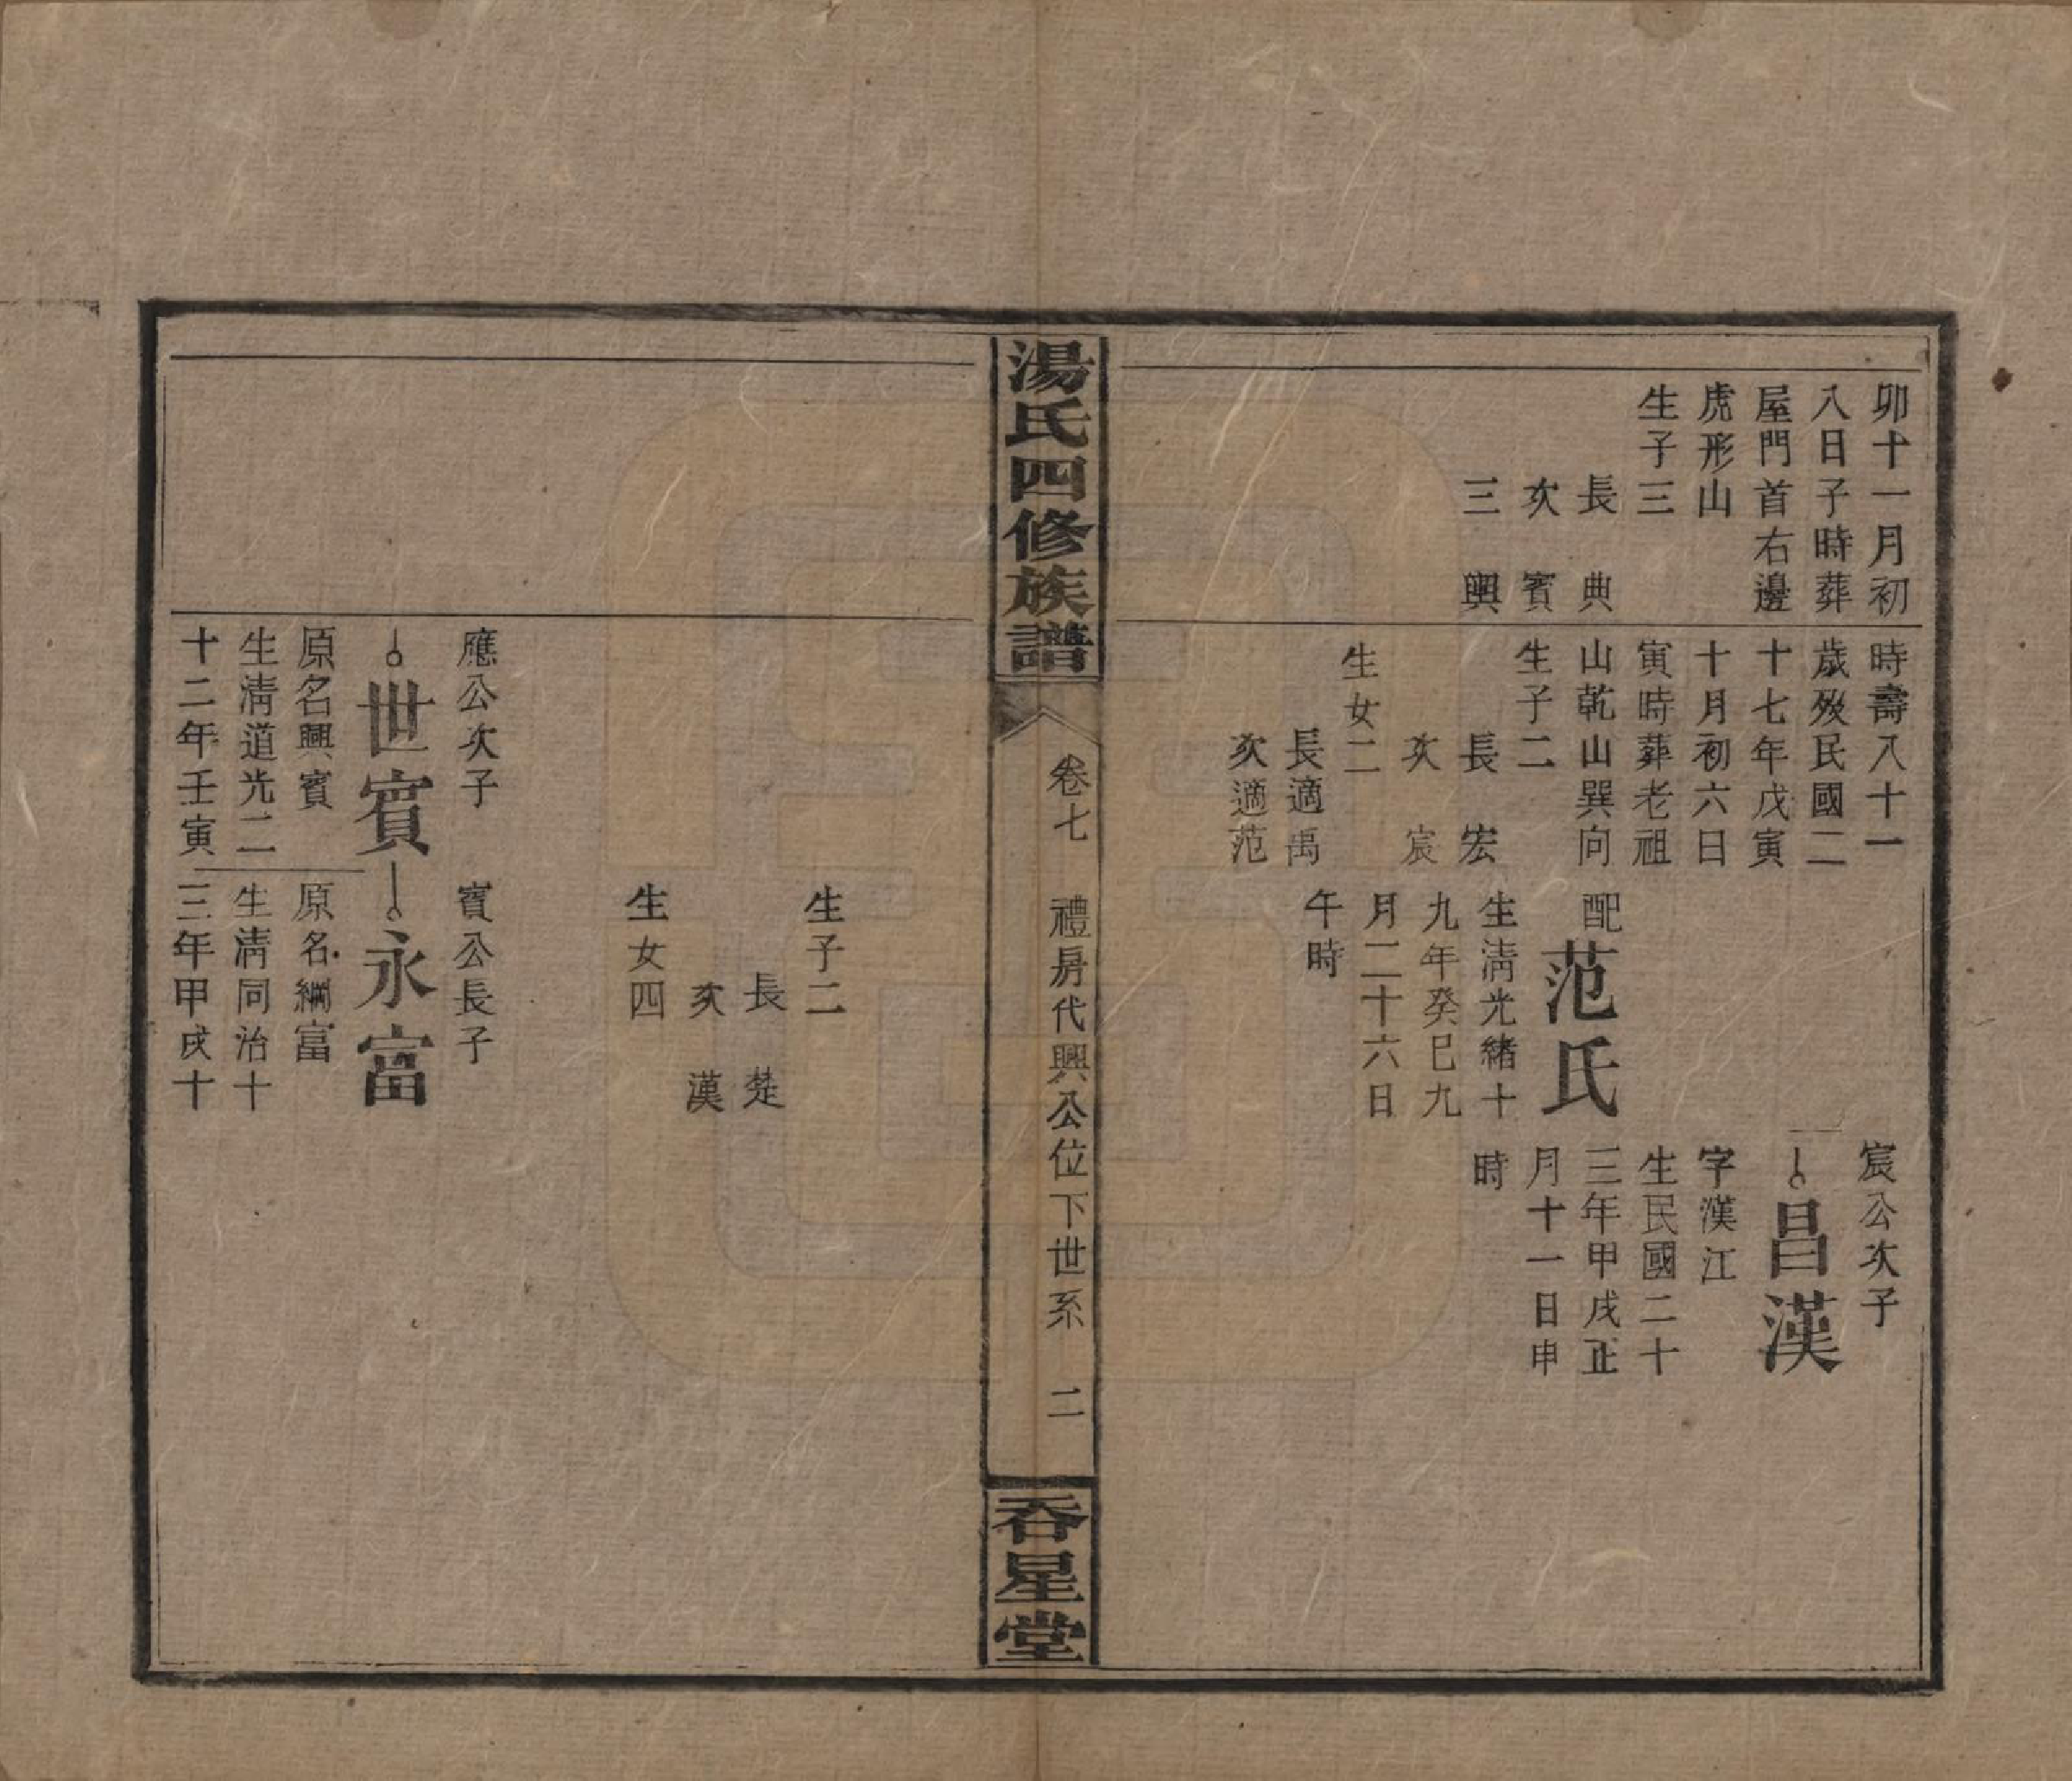 卯十一月初
八日子時葬
屋門首右邊
虎形山
生子三
長 典
次 賓
三 興
時壽八十一
歲歿民國二
十七年戊寅
十月初六日
寅時葬老祖
山乾山巽向
生子二
長 宏
次 宸
生女二
長適禹
次適范
配范氏
生清光緒十
九年癸巳九
月二十六日
午時
宸公次子
昌漢
字漢江
生民國二十
三年甲戌正
月十一日申
時
湯氏四修族譜
卷七 禮房代興公位下世系 二
吞星堂
生子二
長 楚
次 漢
生女四
應公次子
世賓
原名興賓
生清道光二
十二年壬寅
賓公長子
永富
原名綱富
生清同治十
三年甲戌十